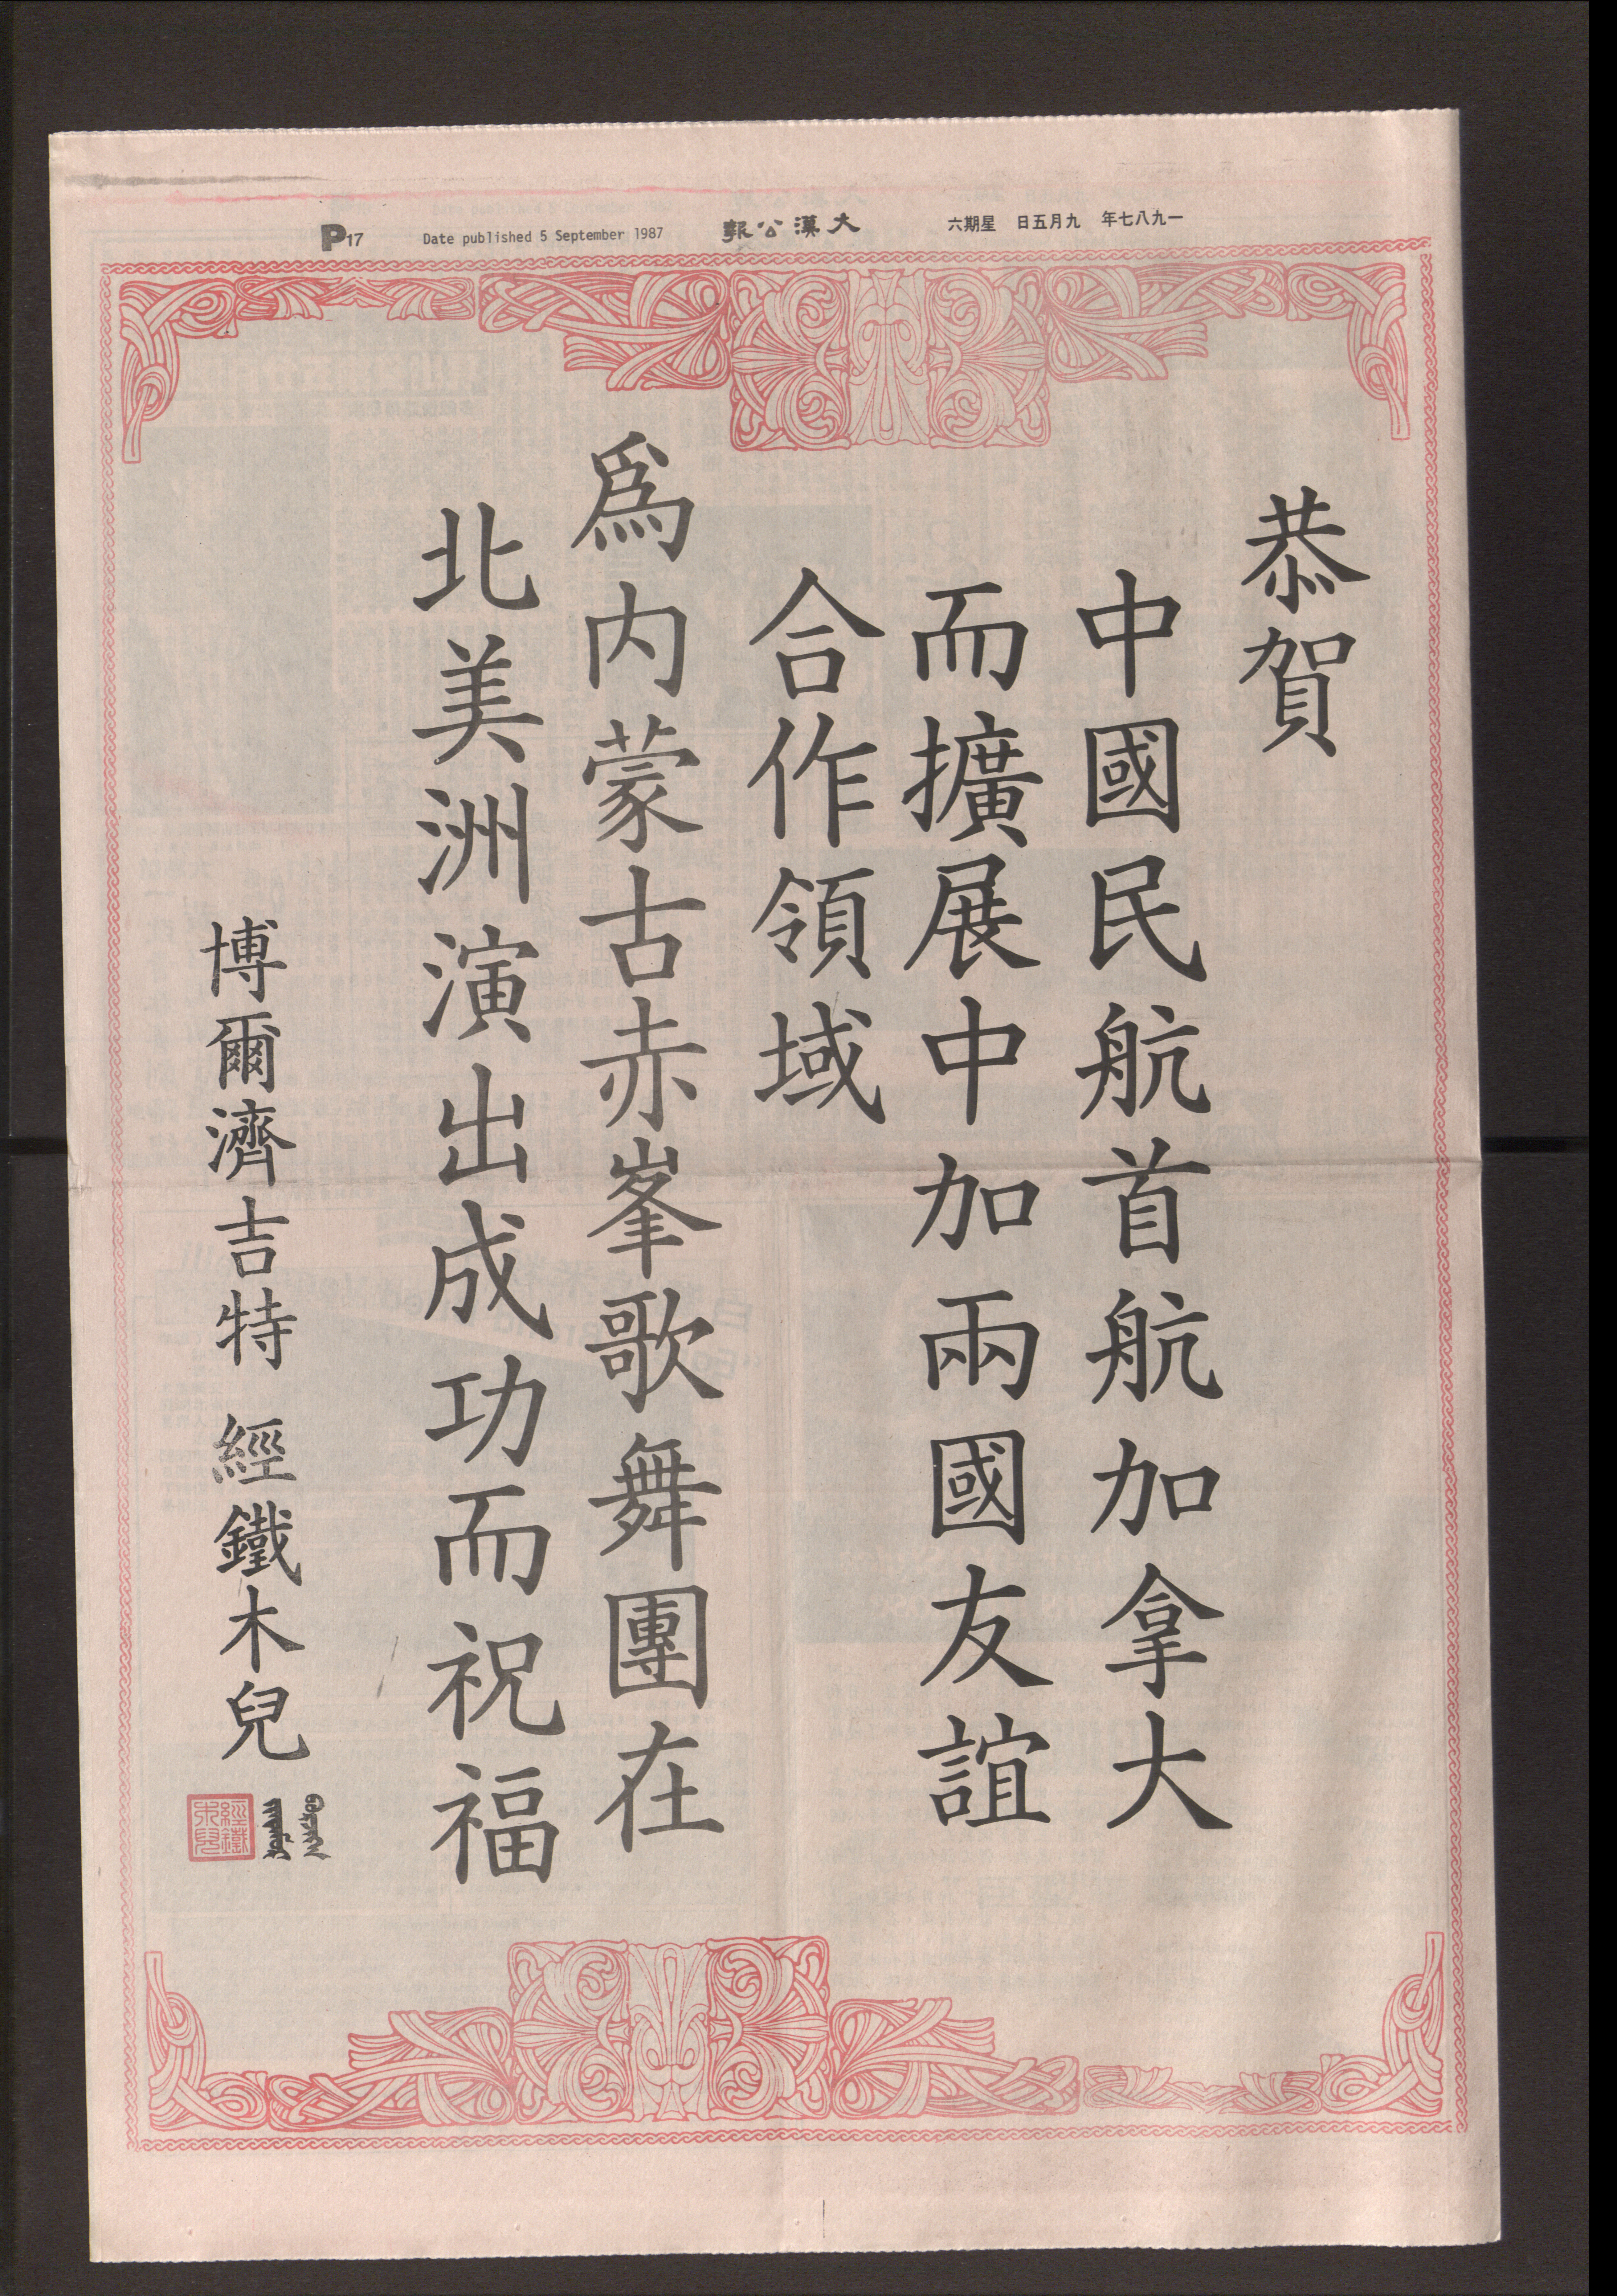 一九八七年 九月五日 星期六
大漢公報
Date published 5 September 1987
P17
恭賀
中國民航首航加拿大
而擴展中加兩國友誼
合作領域
爲内蒙古赤峯歌舞團在
北美洲演出成功而祝福
博爾濟吉特 經鐵木兒
經鐵木兒